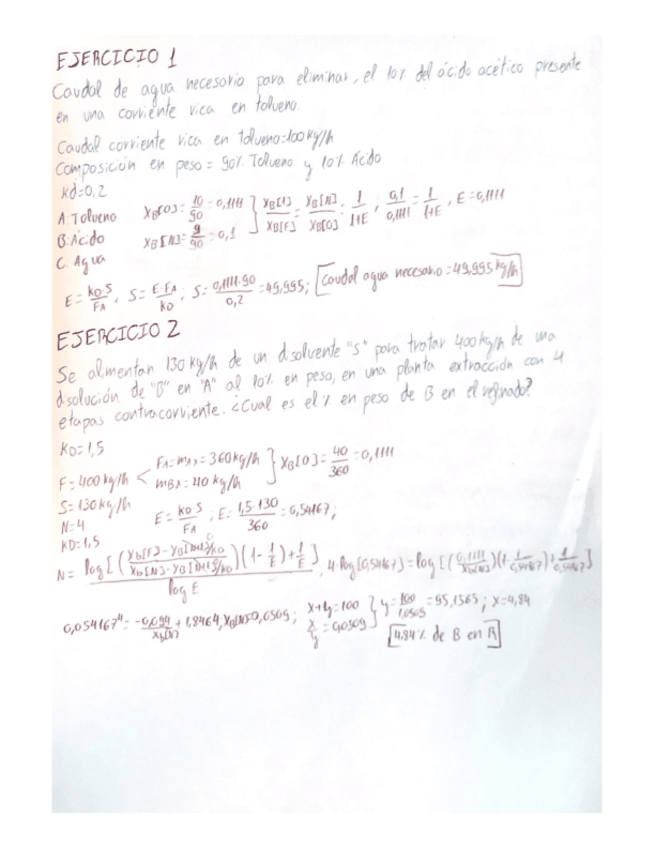 EJERCICIO 1
Caudal de agua necesario para eliminar, el 10% del ácido acético presente
en una corriente rica en tolueno.
Caudal corriente rica en tolueno=100kg/h
Composición en peso= 90% Tolueno y 10% Acido
Kd=0,2
A. Tolueno XB[O]= 10/90 = 0,1111 } XB[1]/XB[F] = XB[N]/XB[O] = 1/1+E ; 0,1/0,1111 = 1/1+E , E=0,1111
B: Acido XB[N]= 9/90 = 0,1
C. Agua
E= KD·S/FA , S= E·FA/KD ; S= 0,1111·90/0,2 = 49,995; [Caudal agua necesario=49,995 kg/h]
EJERCICIO 2
Se alimentan 130 kg/h de un disolvente "S" para tratar 400kg/h de una
disolución de "B" en "A" al 10% en peso, en una planta extracción con 4
etapas contracorriente. ¿Cual es el % en peso de B en el refinado?
KD=1,5
F=400 kg/h < FA=mA1=360kg/h } XB[O]= 40/360 = 0,1111
mB1=40 kg/h
S=130kg/h
N=4 E= KD·S/FA ; E= 1,5·130/360 = 0,54167;
KD=1,5
N= log[(XB[F]-YB[N+1]/KD / XB[N]-YB[N+1]/KD)(1-1/E)+1/E] / log E , 4·log[0,54167]=log[(0,1111/XB[N])(1-1/0,54167)+1/0,54167]
0,054167⁴= -0,094/XB[N] + 1,8464, XB[N]=0,0509; x+y=100 x/y=0,0509 } y= 100/1,0509 = 95,1565 ; x=4,84
[4,84% de B en R]